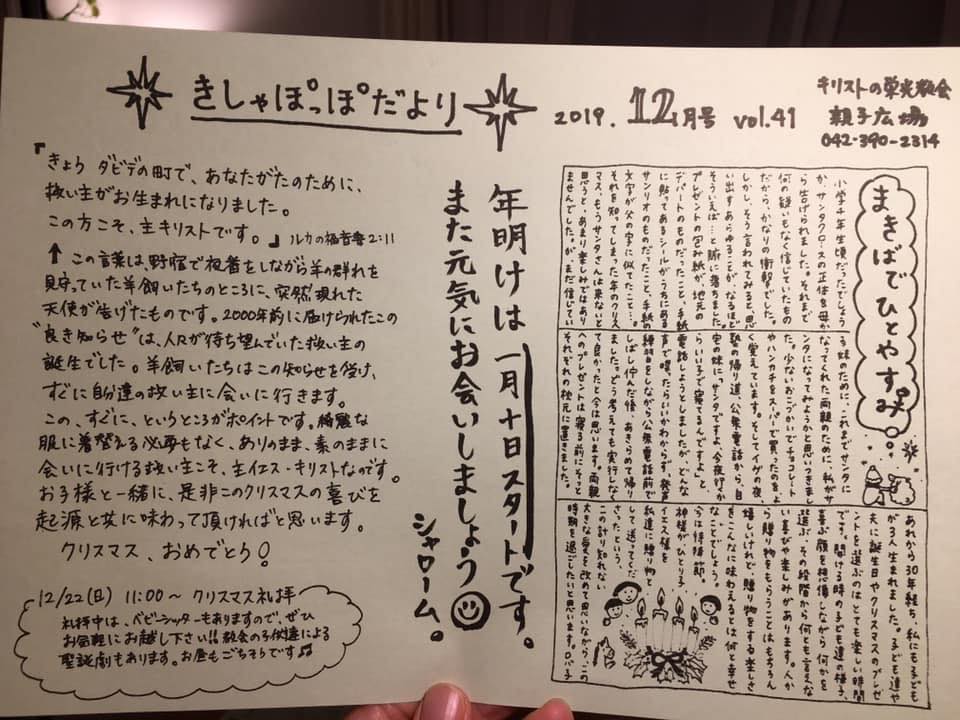 きしゃぽっぽだより
2019. 12月号 vol.41
キリストの栄光教会
親子広場
042-390-2314
『きょう ダビデの町で、あなたがたのために、
救い主がお生まれになりました。
この方こそ、主キリストです。』 ルカの福音書2:11
↑ この言葉は、野宿で夜番をしながら羊の群れを
見守っていた羊飼いたちのところに、突然現れた
天使が告げたものです。2000年前に届けられたこの
“良き知らせ”は、人々が待ち望んでいた救い主の
誕生でした。羊飼いたちはこの知らせを受け、
すぐに自分達の救い主に会いに行きます。
この、すぐに、というところがポイントです。綺麗な
服に着替える必要もなく、ありのまま、素のままに
会いに行ける救い主こそ、主イエス・キリストなのです。
お子様と一緒に、是非このクリスマスの喜びを
起源と共に味わって頂ければと思います。
クリスマス、おめでとう!
12/22(日) 11:00〜 クリスマス礼拝
礼拝中は、ベビーシッターもありますので、ぜひ
お気軽にお越し下さい!! 教会の子供達による
聖誕劇もあります。お昼もごちそうです♫
年明けは一月十日スタートです。
また元気にお会いしましょう
シャローム。
まきばでひとやすみ。
小学千年生頃だったでしょう
か、サンタクロースの正体を母か
ら告げられました。それまで
何の疑いもなく信じていたもの
だから、かなりの衝撃でした。
しかし、そう言われてみると、思
い出すあらゆることが、なるほど
そういえば…と腑に落ちました。
プレゼントの包み紙が、地元の
デパートのものだったこと、手紙
に貼ってあるシールがうちにある
サンリオのものだったこと、手紙の
文字が父の字に似てたこと…。
それを知ってしまった年のクリス
マス、もうサンタさんは来ないと
思うと、あまり楽しみではあり
ませんでした。が、まだ信じてい
る妹のために、これまでサンタに
なってくれた両親のために、私がサ
ンタになってみようかと思いつきまし
た。少ないおこづかいでチョコレート
やハンカチをスーパーで買ったのをよ
く覚えています。そしてイヴの夜、
塾の帰り道、公衆電話から、自
宅の妹に「サンタですよ、今夜行くか
らいい子で寝てるんですよ」と、
電話しようとしましたが、どんな
声で喋ったらいいかわからず、発声
練習をしながら公衆電話前で
しばし佇んだ後、あきらめて帰り
ました。どう考えても実行しなく
て良かったと今は思います。両親
へのプレゼントは寝る前にそっと
それぞれの枕元に置きました。
あれから30年経ち、私にも子ども
が3人生まれました。子ども達や
夫に誕生日やクリスマスのプレゼ
ントを選ぶのはとても楽しい時間
です。開ける時の子ども達の様子、
喜ぶ顔を想像しながら何かを
選ぶ、その段階から何とも言えな
い喜びや楽しみがあります。人か
ら贈り物をもらうことはもちろん
嬉しいけれど、贈り物をする楽しさ
をこんなに味わえるとは何と幸せ
なことでしょう。
今は待降節。
神様がひとり子
イエス様を
私達に贈り物と
して送ってくだ
さったという、
この計り知れない
大きな愛を改めて思いながら、この
時期を過ごしたいと思います。ロバ子